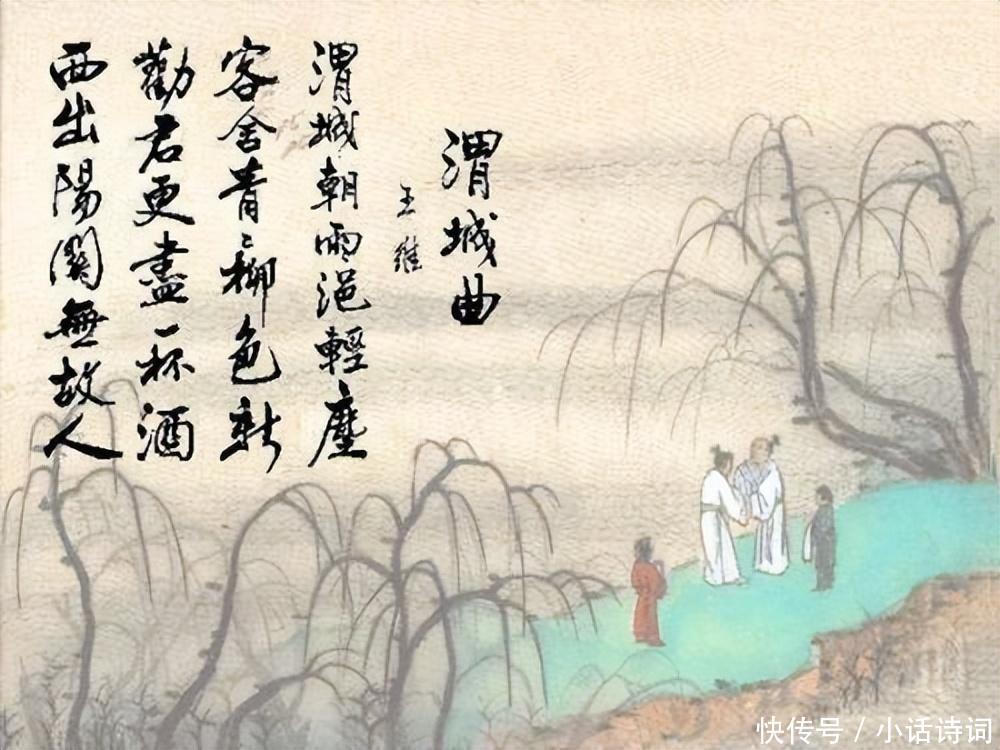 渭城曲
王維
渭城朝雨浥輕塵
客舍青〻柳色新
勸君更盡一杯酒
西出陽關無故人
快传号／小话诗词